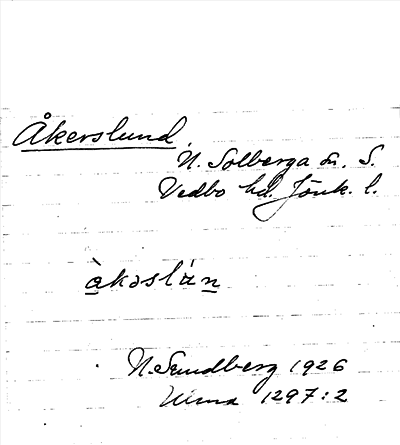 Åkerslund
N. Solberga sn. S.
Vedbo hd. Jönk. l.
àkəslán
N. Sundberg 1926
1297:2